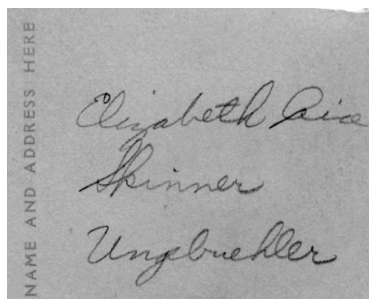 NAME AND ADDRESS HERE
Elizabeth
Skinner
Ungebuehler